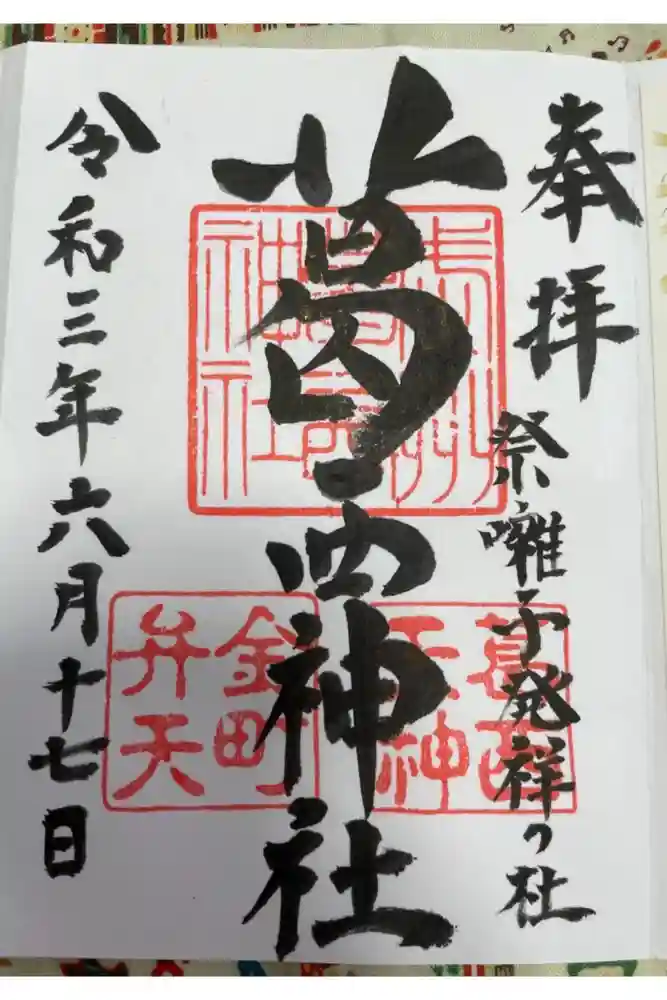 奉拝
祭囃子発祥の杜
葛西神社
令和三年六月十七日
葛西
天神
金町
弁天
神社